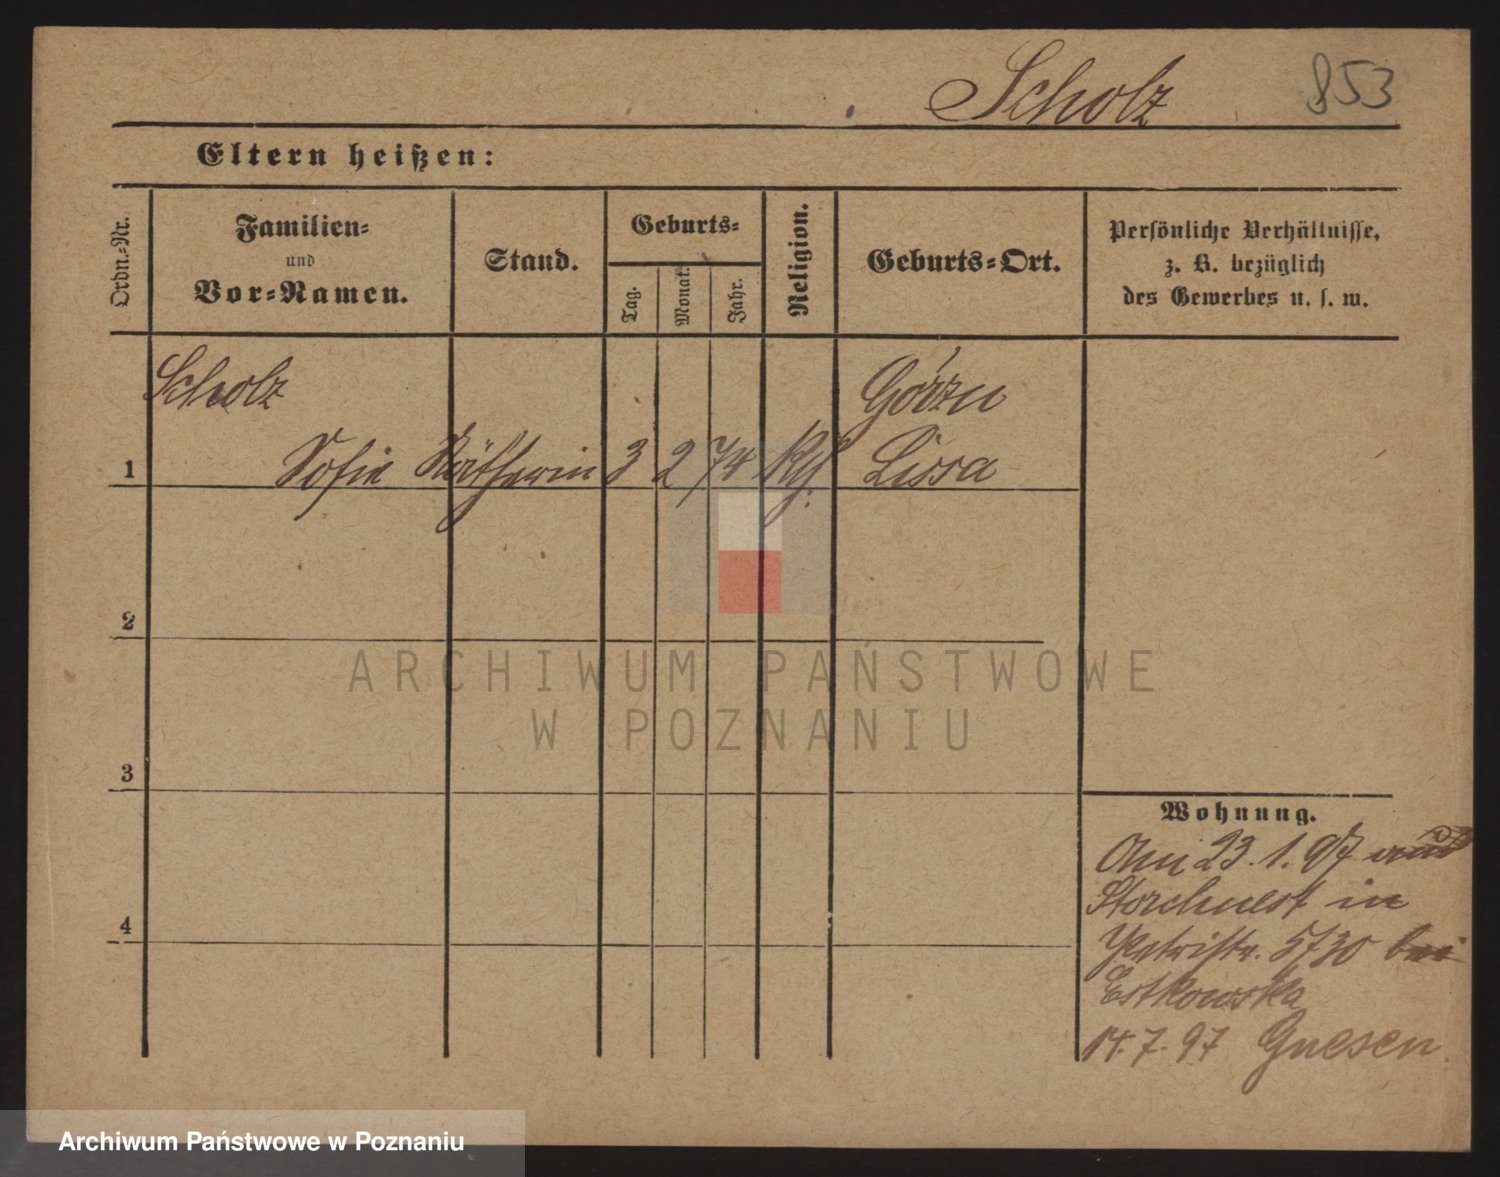 Scholz 853
Eltern heißen:
Ordn.=Nr.
Familien=
und
Vor=Namen.
Stand.
Geburts=
Tag.
Monat.
Jahr.
Religion.
Geburts=Ort.
Persönliche Verhältnisse,
z. B. bezüglich
des Gewerbes u. s. w.
Scholz
Sofie Näherin 3 2 74
Lissa
1
2
3
4
ARCHIWUM PAŃSTWOWE
W POZNANIU
Wohnung.
23. 1. 97
Storchnest in
Petristr. 5/30 bei
Estkowska
14. 7. 97 Gnesen.
Archiwum Państwowe w Poznaniu